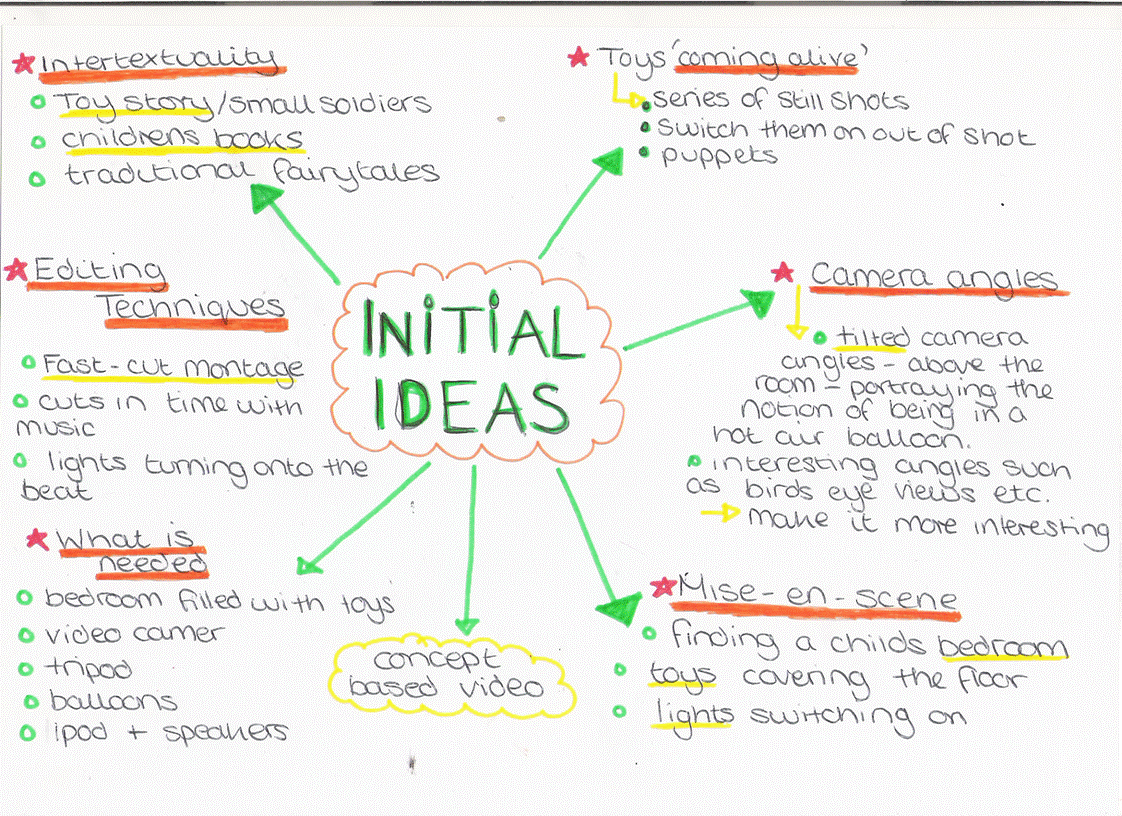 Intertextuality
Toy story/small soldiers
childrens books
traditional fairytales
Toys 'coming alive'
series of still shots
switch them on out of shot
puppets
Editing
Techniques
Fast-cut montage
cuts in time with
music
lights turning onto the
beat
INITIAL
IDEAS
Camera angles
tilted camera
angles - above the
room - portraying the
notion of being in a
hot air balloon.
interesting angles such
as birds eye views etc.
make it more interesting
What is
needed
bedroom filled with toys
video camer
tripod
balloons
ipod + speakers
concept
based video
Mise-en-scene
finding a childs bedroom
toys covering the floor
lights switching on